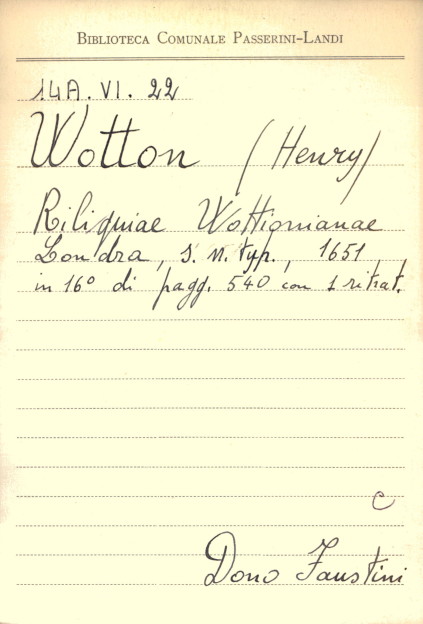 BIBLIOTECA COMUNALE PASSERINI-LANDI
14A. VI. 22
Wotton (Henry)
Riliquiae Wottionianae
Londra, s. n. typ., 1651,
in 16° di pagg. 540 con 1 ritrat.
C
Dono Faustini